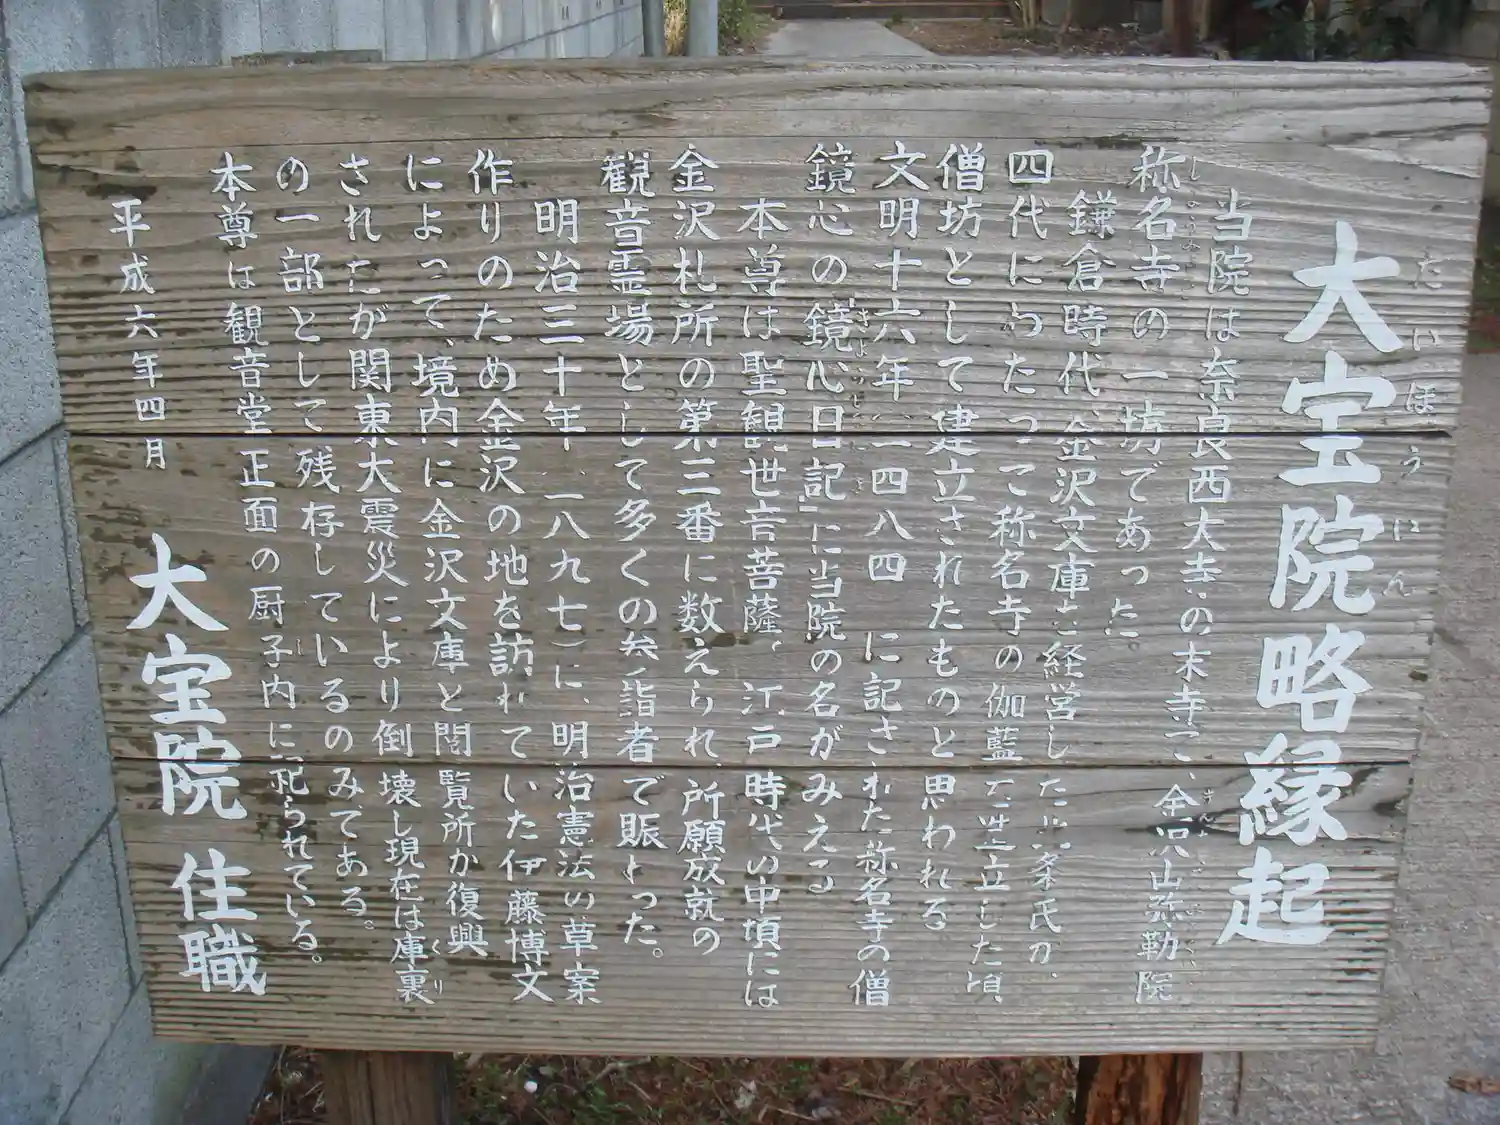 大宝院略縁起
たいほういん
当院は奈良西大寺の末寺で、金沢山弥勒院
称名寺の一坊であった。
鎌倉時代、金沢文庫を経営した北条氏が、
四代にわたって称名寺の伽藍を造立した頃
僧坊として建立されたものと思われる
文明十六年(一四八四)に記された称名寺の僧
鏡心の「鏡心日記」に当院の名がみえる
本尊は聖観世音菩薩、江戸時代の中頃には
金沢札所の第三番に数えられ、所願成就の
観音霊場として多くの参詣者で賑わった。
明治三十年(一八九七)に、明治憲法の草案
作りのため金沢の地を訪れていた伊藤博文
によって、境内に金沢文庫と閲覧所が復興
されたが関東大震災により倒壊し現在は庫裏
くり
の一部として残存しているのみである。
本尊は観音堂正面の厨子内に祀られている。
平成六年四月
大宝院 住職